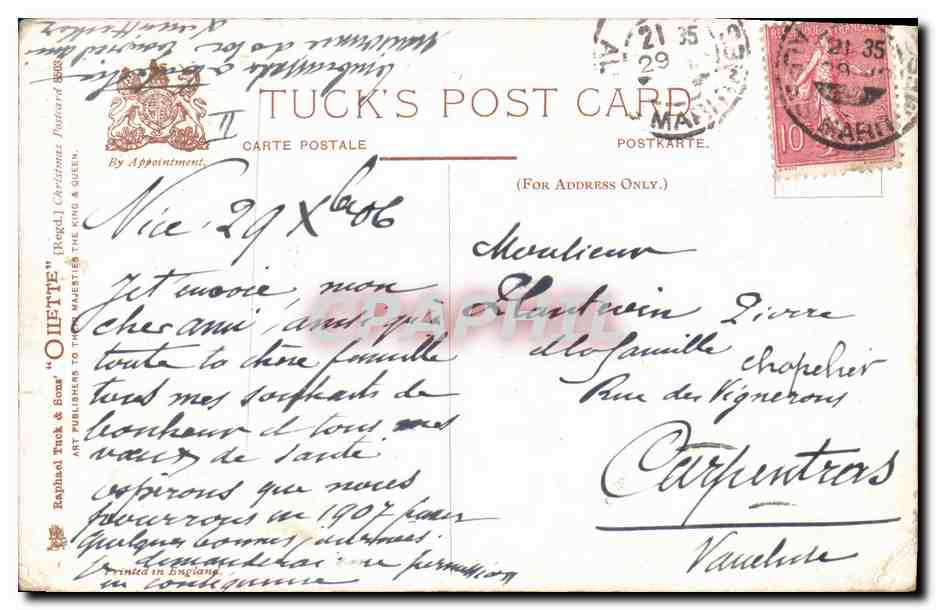 TUCK'S POST CARD
CARTE POSTALE
POSTKARTE.
(FOR ADDRESS ONLY.)
By Appointment.
Raphael Tuck & Sons' "OILETTE" [Regd.] Christmas Postcard 8503
ART PUBLISHERS TO THEIR MAJESTIES THE KING & QUEEN.
Printed in England.
21 35
29
MARIT
21 35
29
MARIT
10
Nice 29 Xbre 06
Je t'envoie, mon
cher ami, ainsi qu'à
toute ta chère famille
tous mes souhaits de
bonheur et tous mes
vœux de santé
espérons que nous
pourrons en 1907 passer
quelques bonnes journées.
je demanderai une permission
en conséquence
II
Monsieur
Plantevin Pierre
de la famille
chapelier
Rue des Vignerons
Carpentras
Vaucluse
CPAPHIL